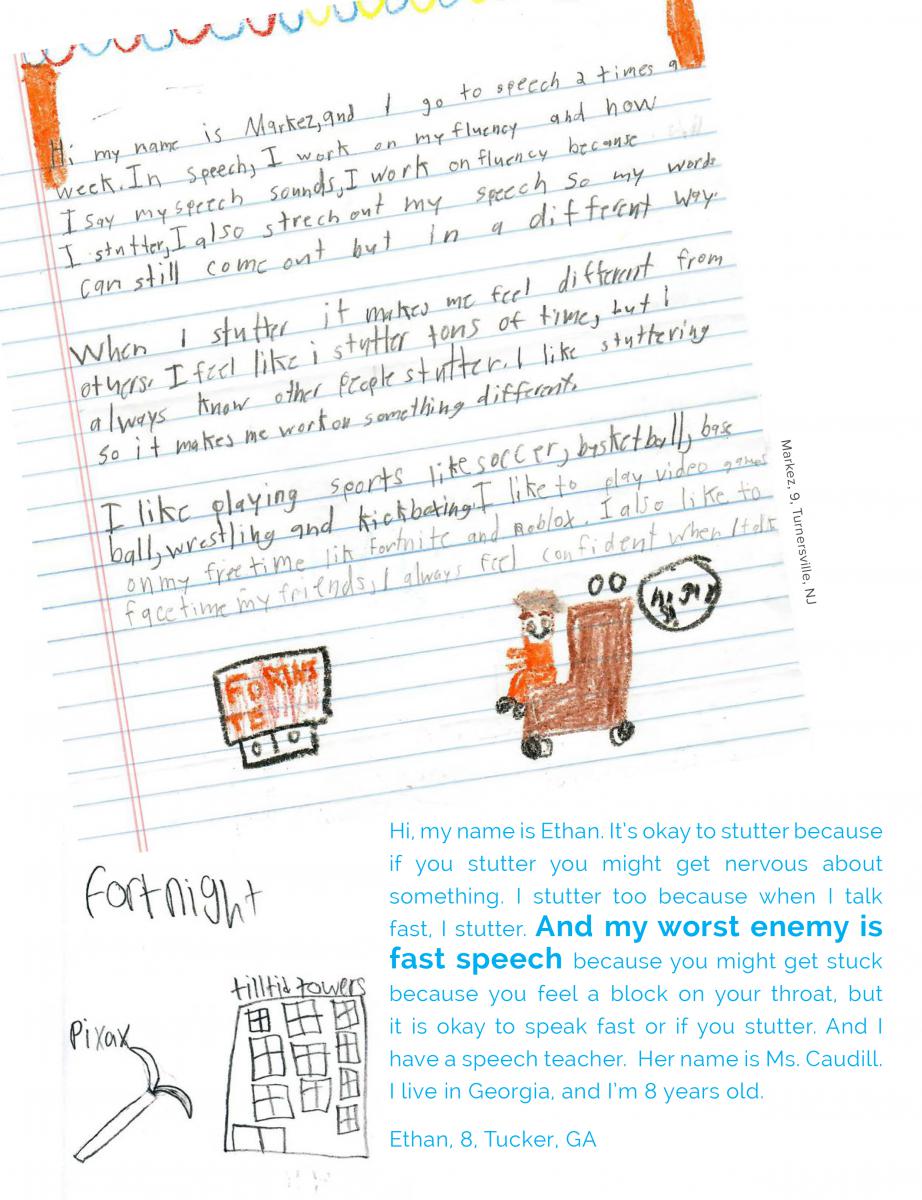 Hi my name is Markez, and I go to speech 2 times a
week. In speech, I work on my fluency and how
I say my speech sounds, I work on fluency because
I stutter, I also strech out my speech so my words
can still come out but in a different way.
When I stutter it makes me feel different from
others. I feel like i stutter tons of time, but I
always know other people stutter. I like stuttering
so it makes me work on something different.
I like playing sports like soccer, basketball, base
ball, wrestling and kickboxing, I like to play video games
on my free time lik Fortnite and Roblox. I also like to
facetime my friends, I always feel confident when I talk
Markez, 9, Turnersville, NJ
FORTNI
TE
Hi, my name is Ethan. It's okay to stutter because
if you stutter you might get nervous about
something. I stutter too because when I talk
fast, I stutter. And my worst enemy is
fast speech because you might get stuck
because you feel a block on your throat, but
it is okay to speak fast or if you stutter. And I
have a speech teacher. Her name is Ms. Caudill.
I live in Georgia, and I'm 8 years old.
Ethan, 8, Tucker, GA
fortnight
tilltid towers
Pixax